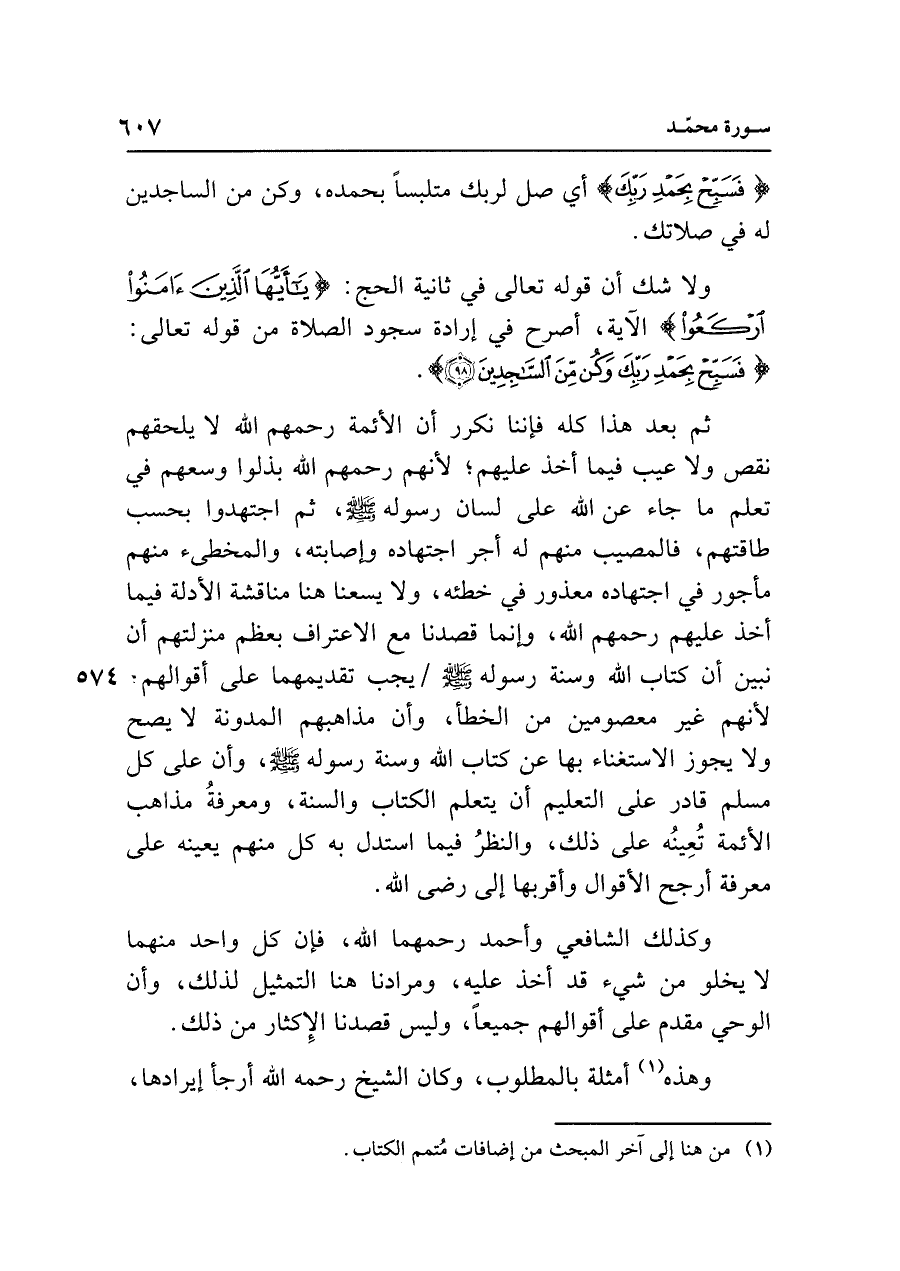 سورة محمّد ٦٠٧
﴿ فَسَبِّحْ بِحَمْدِ رَبِّكَ﴾ أي صل لربك متلبساً بحمده، وكن من الساجدين
له في صلاتك.
ولا شك أن قوله تعالى في ثانية الحج: ﴿ يَٰٓأَيُّهَا ٱلَّذِينَ ءَامَنُوا۟
ٱرْكَعُوا۟﴾ الآية، أصرح في إرادة سجود الصلاة من قوله تعالى:
﴿ فَسَبِّحْ بِحَمْدِ رَبِّكَ وَكُن مِّنَ ٱلسَّٰجِدِينَ ٩٨﴾.
ثم بعد هذا كله فإننا نكرر أن الأئمة رحمهم الله لا يلحقهم
نقص ولا عيب فيما أخذ عليهم؛ لأنهم رحمهم الله بذلوا وسعهم في
تعلم ما جاء عن الله على لسان رسوله ﷺ، ثم اجتهدوا بحسب
طاقتهم، فالمصيب منهم له أجر اجتهاده وإصابته، والمخطىء منهم
مأجور في اجتهاده معذور في خطئه، ولا يسعنا هنا مناقشة الأدلة فيما
أخذ عليهم رحمهم الله، وإنما قصدنا مع الاعتراف بعظم منزلتهم أن
نبين أن كتاب الله وسنة رسوله ﷺ /يجب تقديمهما على أقوالهم؛ ٥٧٤
لأنهم غير معصومين من الخطأ، وأن مذاهبهم المدونة لا يصح
ولا يجوز الاستغناء بها عن كتاب الله وسنة رسوله ﷺ، وأن على كل
مسلم قادر على التعليم أن يتعلم الكتاب والسنة، ومعرفةُ مذاهب
الأئمة تُعِينُه على ذلك، والنظرُ فيما استدل به كل منهم يعينه على
معرفة أرجح الأقوال وأقربها إلى رضى الله.
وكذلك الشافعي وأحمد رحمهما الله، فإن كل واحد منهما
لا يخلو من شيء قد أخذ عليه، ومرادنا هنا التمثيل لذلك، وأن
الوحي مقدم على أقوالهم جميعاً، وليس قصدنا الإِكثار من ذلك.
وهذه(١) أمثلة بالمطلوب، وكان الشيخ رحمه الله أرجأ إيرادها،
(١) من هنا إلى آخر المبحث من إضافات مُتمم الكتاب.